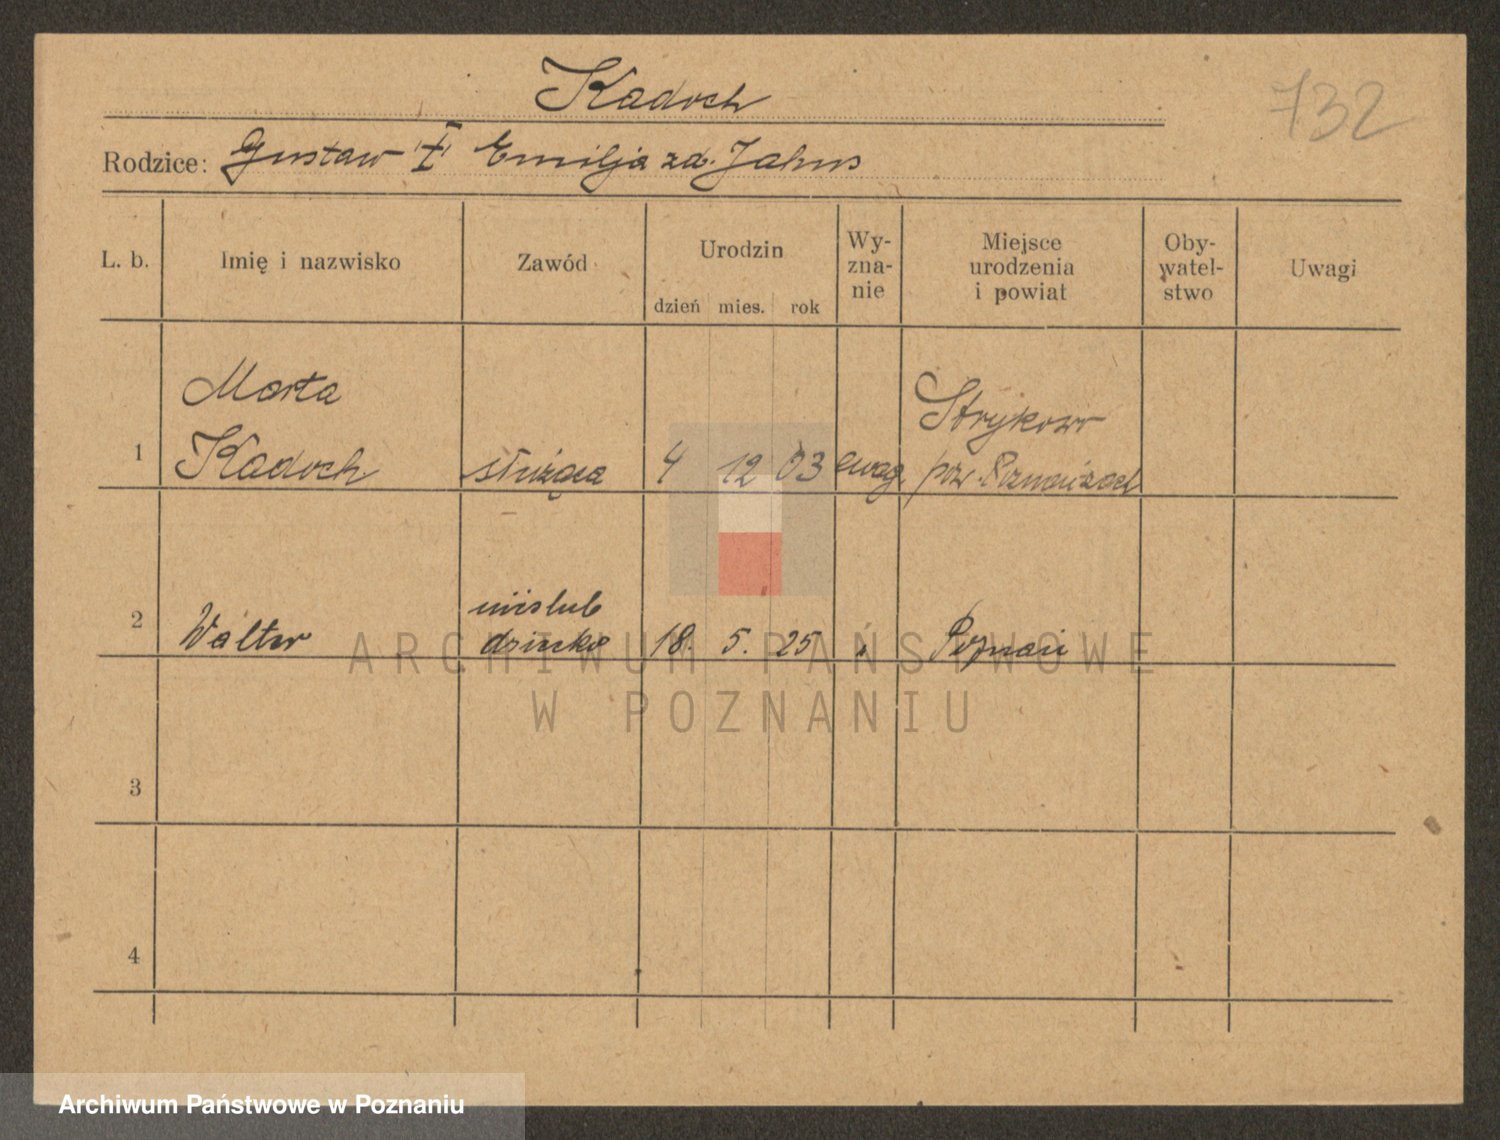 Kadoch
732
Rodzice: Gustaw I Emilja zd. Jahns
L. b.
Imię i nazwisko
Zawód
Urodzin
dzień mies. rok
Wy-
zna-
nie
Miejsce
urodzenia
i powiat
Oby-
watel-
stwo
Uwagi
1
Marta
Kadoch
służąca
4 12 03
ewag.
Strykowo
pow. Poznań zach
2
Walter
nieslub
dziecko
18. 5. 25
"
Poznań
3
4
ARCHIWUM PAŃSTWOWE
W POZNANIU
Archiwum Państwowe w Poznaniu